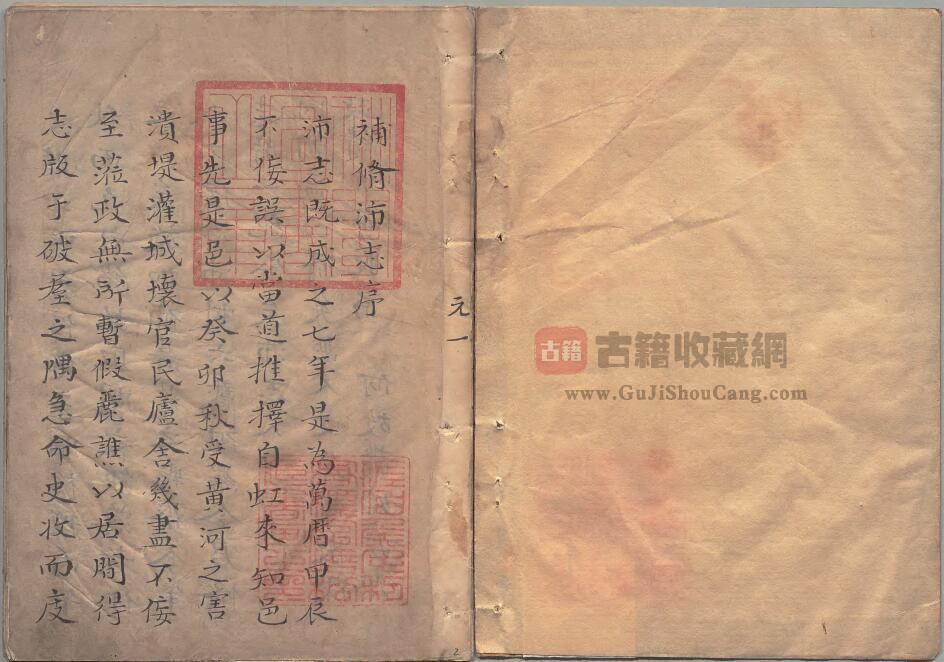 補脩沛志序
沛志既成之七年是為萬曆甲辰
不佞誤以當道推擇自虹來知邑
事先是邑以癸卯秋受黃河之害
潰堤灌城壞官民廬舍幾盡不佞
至蒞政無所暫假麗譙以居間得
志版于破屋之隅急命史收而庋
元一
古籍
古籍收藏網
www.GuJiShouCang.com
2